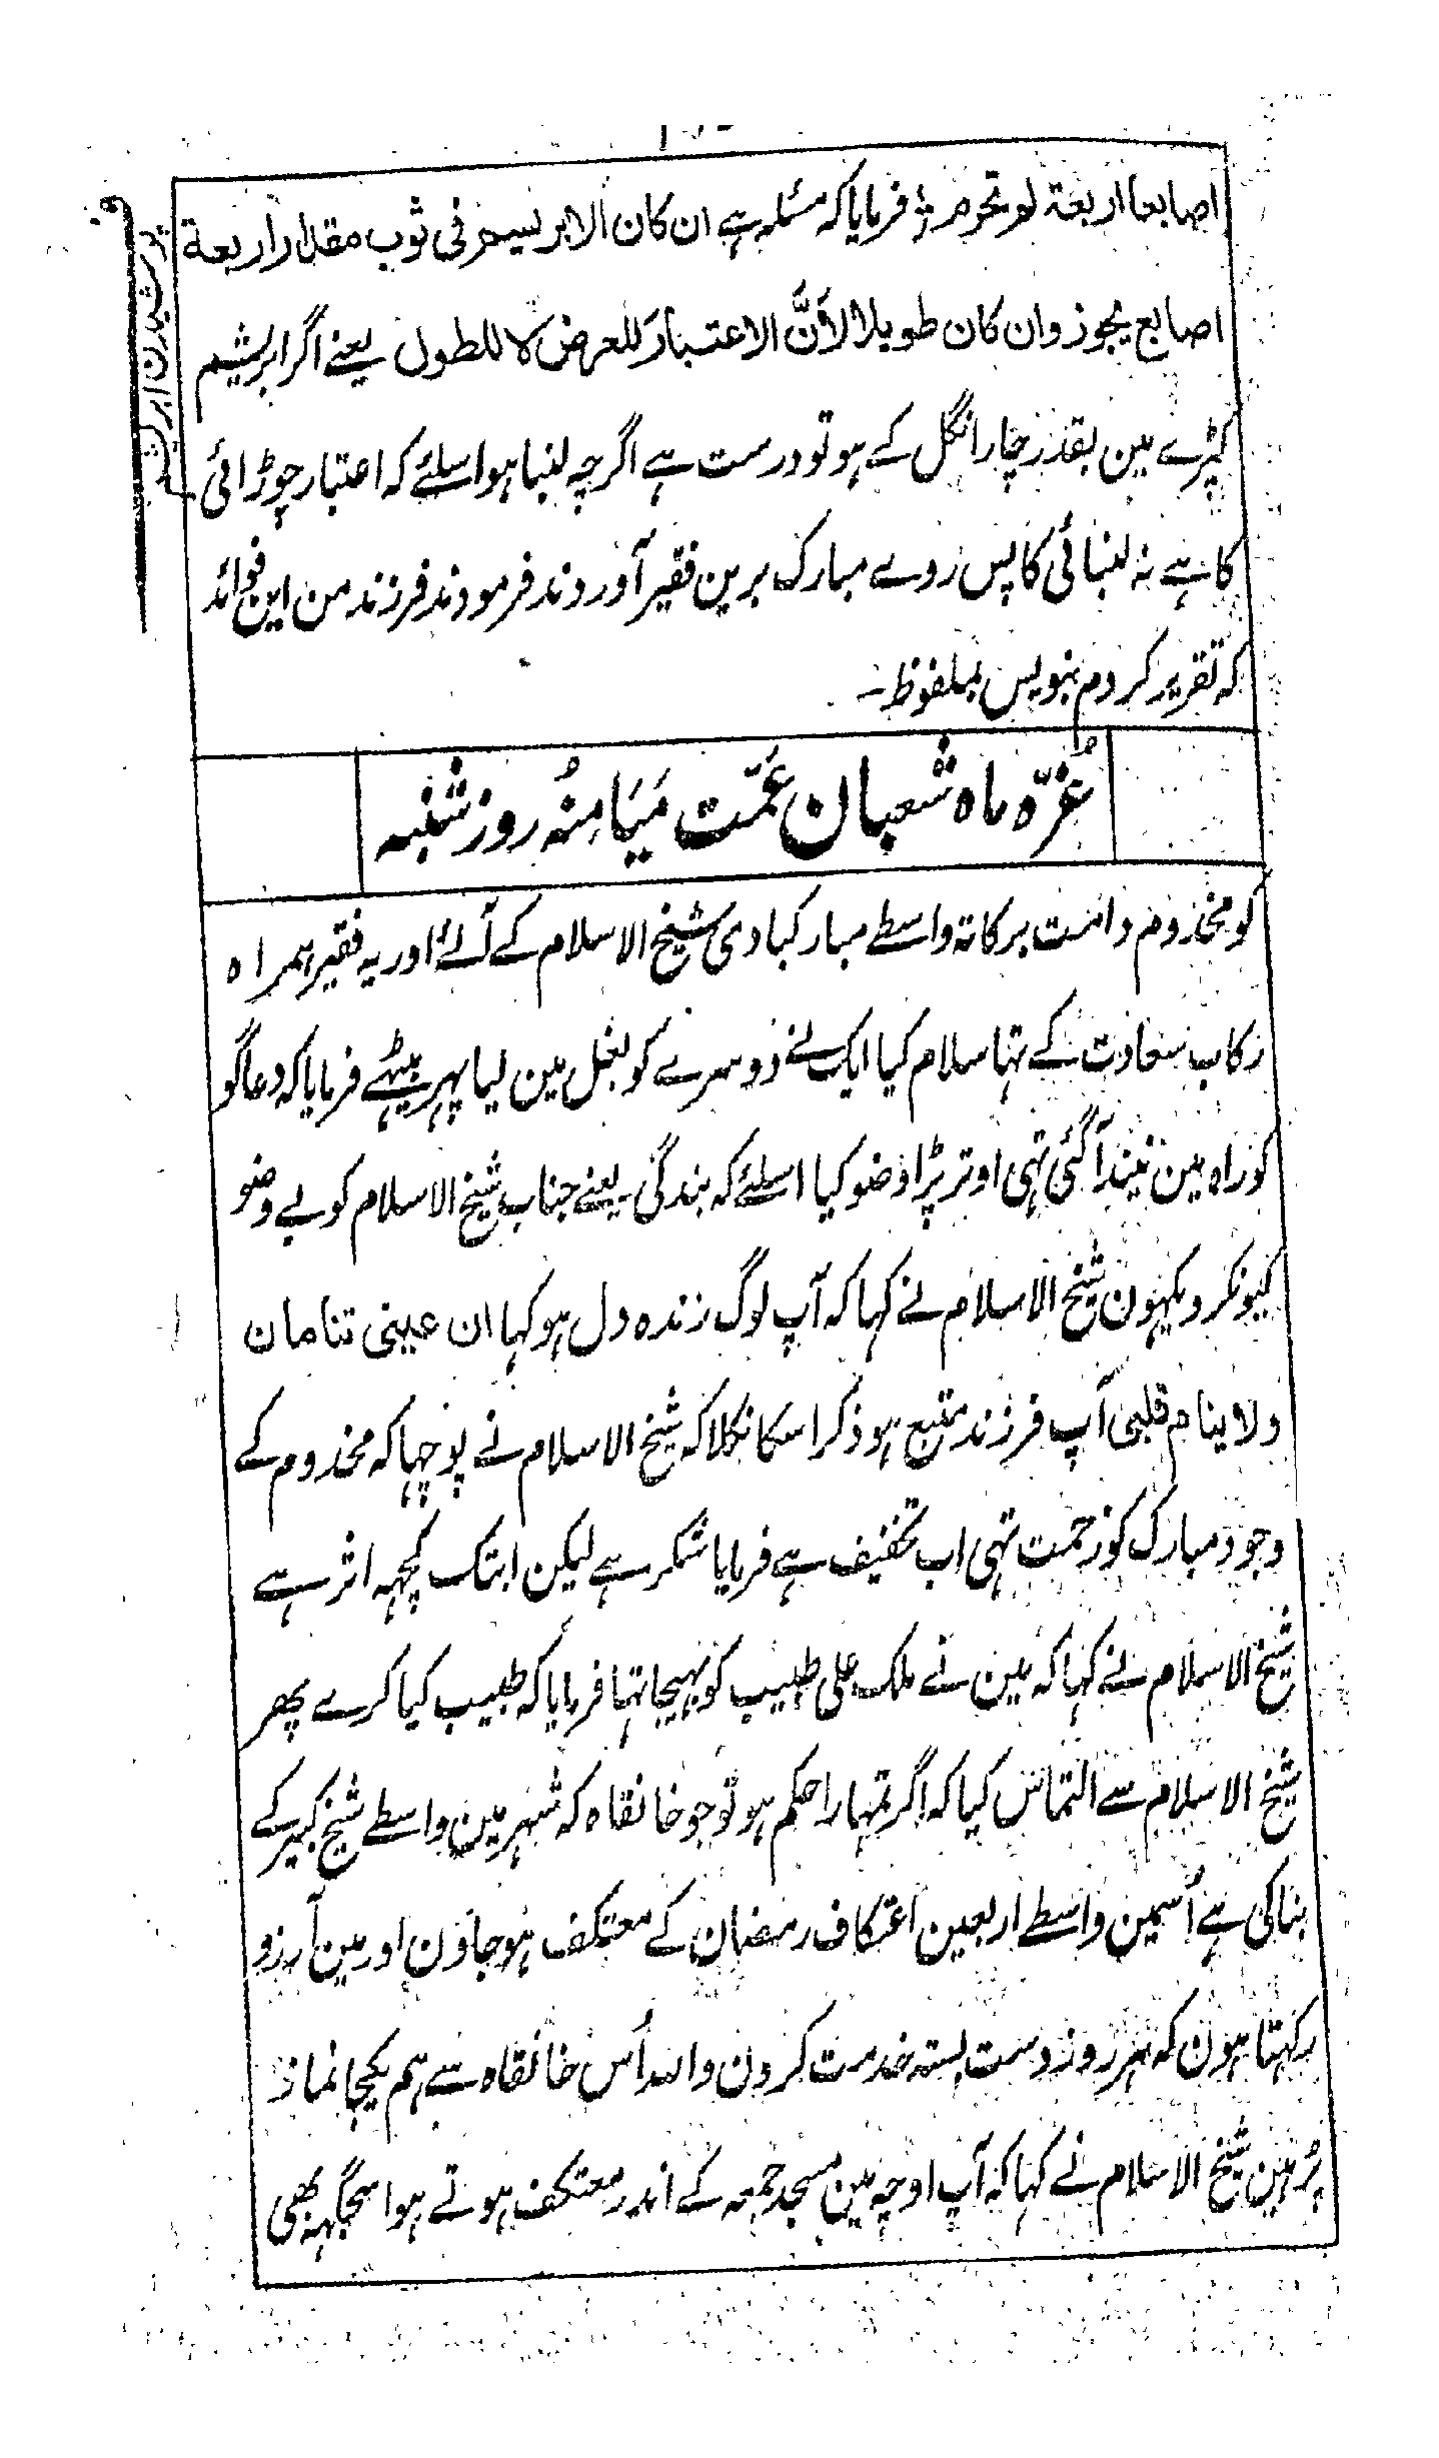 اصابعا اربعۃ لو تحرم ؎ فرمایا کہ مسئلہ ہے ان کان الابریسم فی ثوب مقدار اربعۃ
اصابع یجوز وان کان طویلا لاَنَّ الاعتبارَ للعرض لا للطول یعنے اگر ابریشم
کپڑے مین بقدر چار انگل کے ہو تو درست ہے اگرچہ لنبا ہو اسلئے کہ اعتبار چوڑائی
کا ہے نہ لنبائی کا پس روے مبارک برین فقیر آوردند فرمودند فرزند من این فوائد
کہ تقریر کردم بنویس بملفوظ ۔
پوشیدن ابریشم
غُرّہ ماہ شعبان عَمّت مَیَامِنُہُ روز شنبہ
کو مخدوم دامت برکاتہ واسطے مبارکبادی شیخ الاسلام کے آئے اور یہ فقیر ہمراہ
رکاب سعادت کے تہا سلام کیا ایک نے دوسرے کو بغل مین لیا پہر بیٹہے فرمایا کہ دعاگو
کو راہ مین نیند آگئی تہی اوتر پڑا وضو کیا اسلئے کہ بندگی یعنے جناب شیخ الاسلام کو بے وضو
کیونکر دیکہون شیخ الاسلام نے کہا کہ آپ لوگ زندہ دل ہو کہا ان عینی تنامان
ولا ینام قلبی آپ فرزند متبع ہو ذکر اسکا نکلا کہ شیخ الاسلام نے پوچہا کہ مخدوم کے
وجود مبارک کو زحمت تہی اب تخفیف ہے فرمایا شکر ہے لیکن ابتک کچہہ اثر ہے
شیخ الاسلام نے کہا کہ مین نے ملک علی طبیب کو بہیجا تہا فرمایا کہ طبیب کیا کرے پھر
شیخ الاسلام سے التماس کیا کہ اگر تمہارا حکم ہو تو جو خانقاہ کہ شہر مین واسطے شیخ کبیر کے
بنا کی ہے اُسمین واسطے اربعین اعتکاف رمضان کے معتکف ہو جاؤن اور مین آرزو
رکہتا ہون کہ ہر روز دست بستہ خدمت کرون واللہ اُس خانقاہ سے ہم یکجا نماز
پڑہین شیخ الاسلام نے کہا کہ آپ اوچہ مین مسجد جمعہ کے اندر معتکف ہوتے ہو اسجگہہ بھی